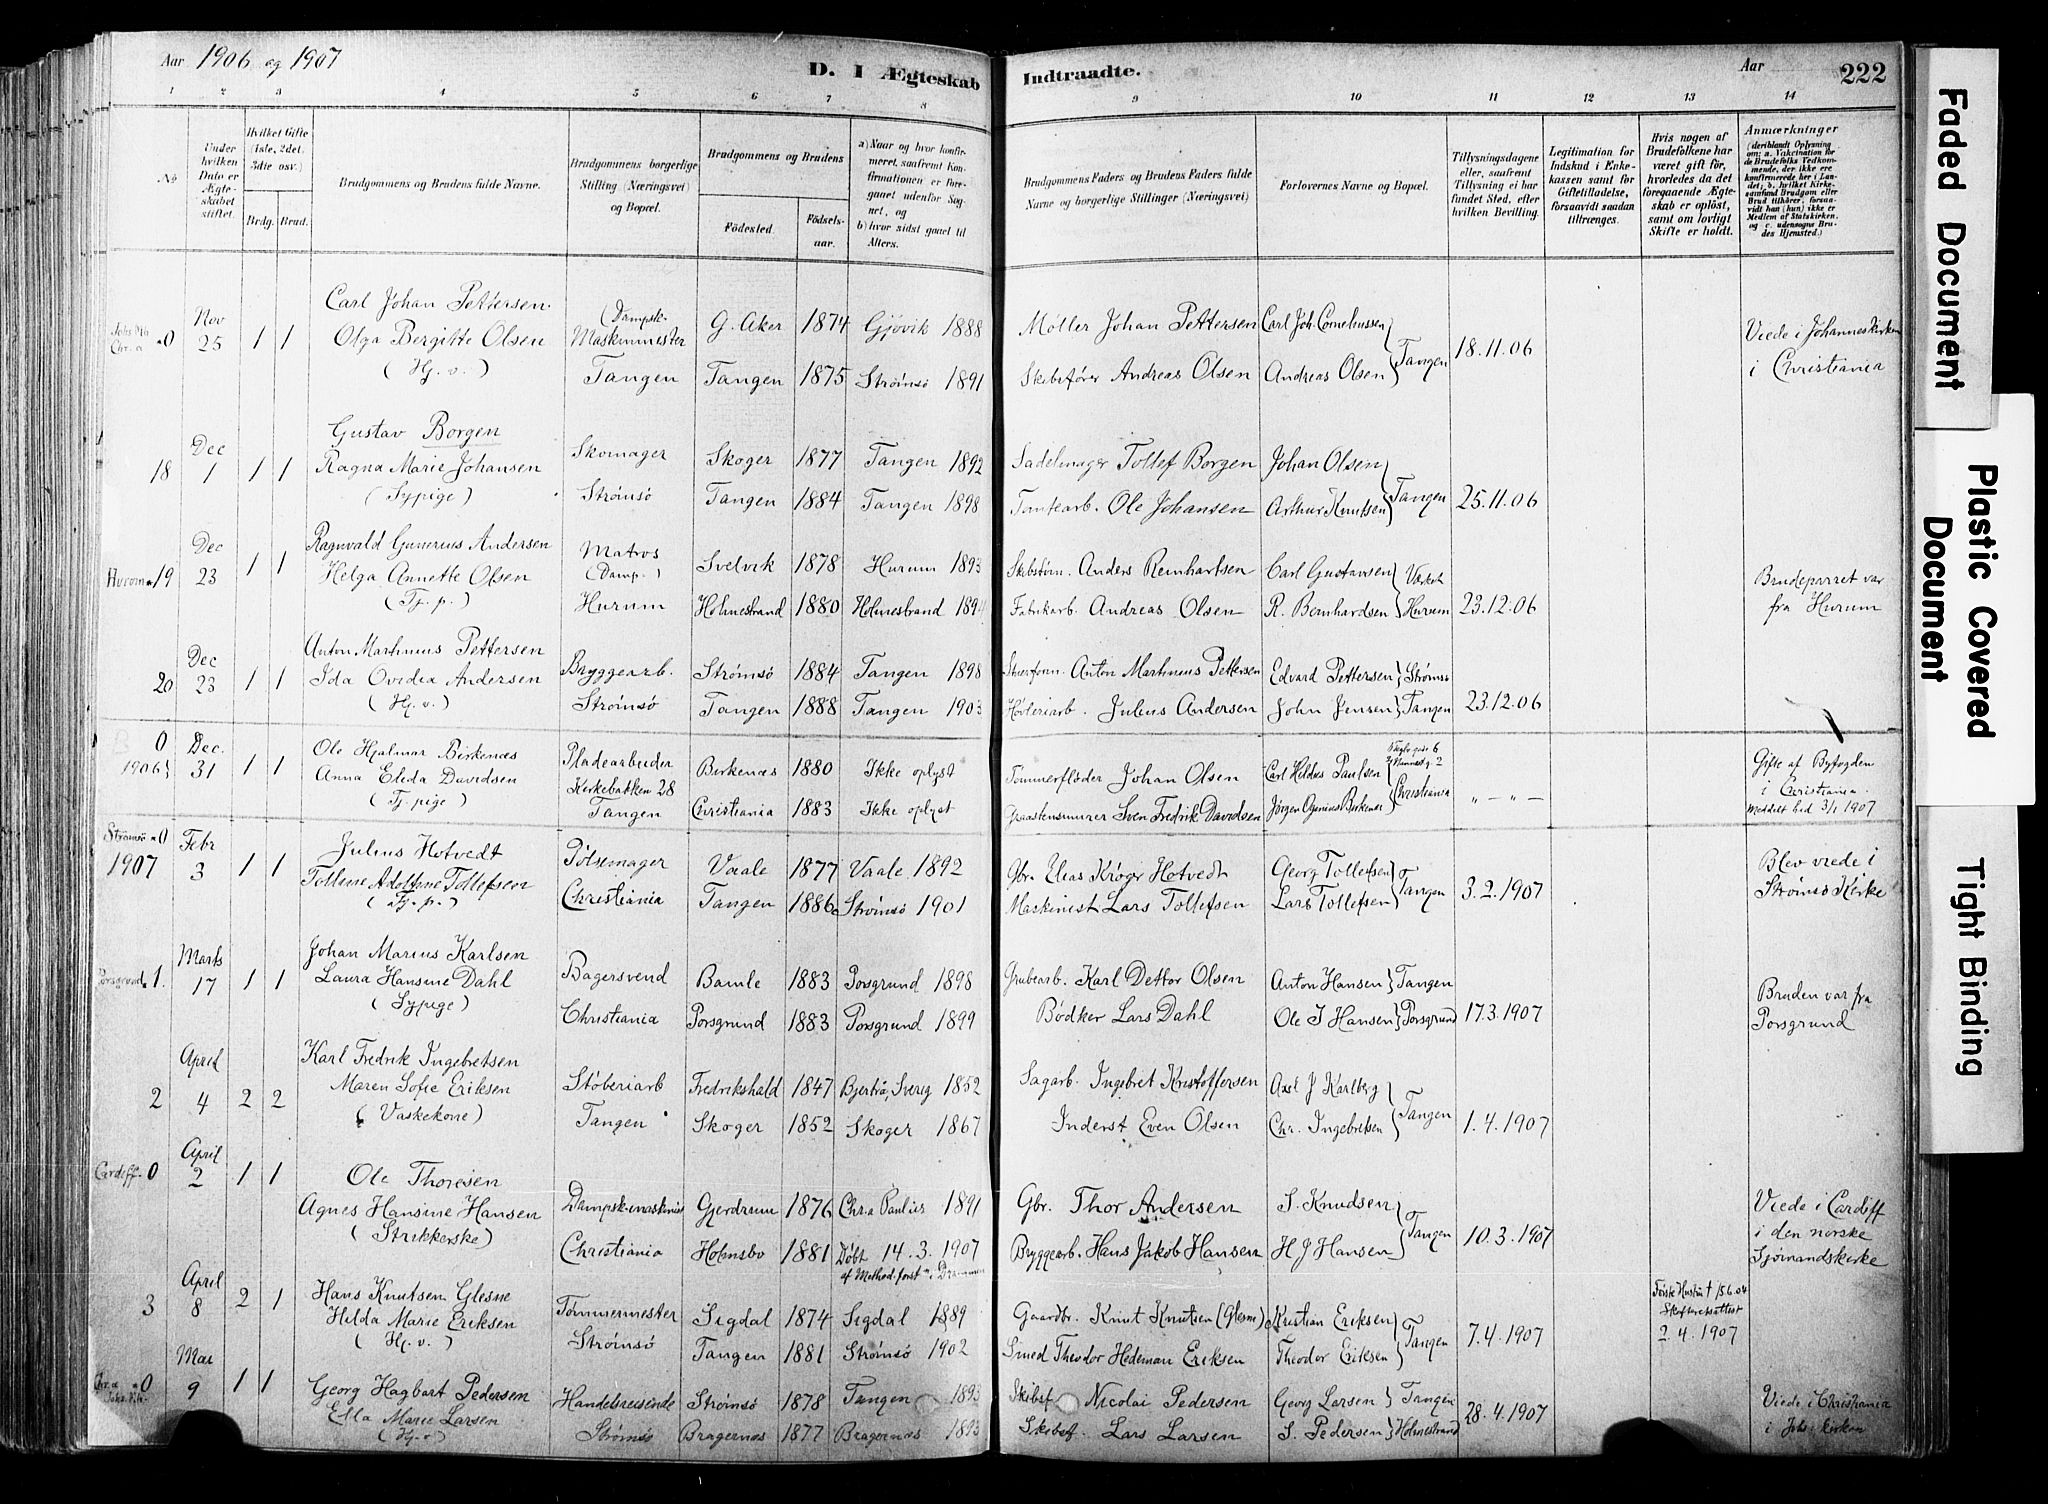 Aar 1906 og 1907
D. I Ægteskab Indtraadte.
Aar 222
1 2 3 4 5 6 7 8 9 10 11 12 13 14
No
Under hvilken Dato er Ægteskabet stiftet.
Hvilket Gifte (1ste, 2det, 3die osv.)
Brdg. Brud.
Brudgommens og Brudens fulde Navne.
Brudgommens borgerlige Stilling (Næringsvei) og Bopæl.
Brudgommens og Brudens
Fødested. Fødselsaar.
a) Naar og hvor konfirmeret, saafremt Konfirmationen er foregaaet udenfor Sognet, og
b) hvor sidst gaaet til Alters.
Brudgommens Faders og Brudens Faders fulde Navne og borgerlige Stillinger (Næringsvei)
Forlovernes Navne og Bopæl.
Tillysningsdagene eller, saafremt Tillysning ei har fundet Sted, efter hvilken Bevilling.
Legitimation for Indskud i Enkekassen samt for Giftetilladelse, forsaavidt saadan tiltrænges.
Hvis nogen af Brudefolkene har været gift før, hvorledes da det foregaaende Ægteskab er opløst, samt om lovligt Skifte er holdt.
Anmærkninger
(deriblandt Oplysning om: a. Vakcination for de Brudefolks Vedkommende, der ikke ere konfirmerede her i Landet; b. hvilket Kirkesamfund Brudgom eller Brud tilhører, forsaavidt han (hun) ikke er Medlem af Statskirken, og c. udensogns Brudes Hjemsted.)
Carl Johan Pettersen (Dampsk.
0 Nov 25 1 1 Olga Bergitte Olsen Maskinmester G. Aker 1874 Gjøvik 1888 Møller Johan Pettersen Carl Joh. Corneliussen 18.11.06 Viede i Johanneskirken
(Hj. v.) Tangen Tangen 1875 Strømsø 1891 Skibsfører Andreas Olsen Andreas Olsen } Tangen i Christiania
Gustav Borgen
18 Dec 1 1 1 Ragna Marie Johansen Skomager Skoger 1877 Tangen 1892 Sadelmager Tollef Borgen Johan Olsen
(Sypige) Strømsø Tangen 1884 Tangen 1898 Ole Johansen Arthur Knutsen } Tangen 25.11.06
Ragnvald Gunerius Andersen
19 Dec 23 1 1 Helga Annette Olsen Matros (Damp.) Svelvik 1878 Hurum 1893 Anders Reinhartsen Carl Gustavsen
(Tj. p.) Hurum Holmestrand 1880 Holmestrand 1894 Fabrikarb. Andreas Olsen R. Bernhardsen } Hurum 23.12.06 Brudeparret var fra Hurum
Anton Martinius Pettersen
20 Dec 23 1 1 Ida Ovidia Andersen Bryggearb. Strømsø 1884 Tangen 1898 Anton Martinius Pettersen Edvard Pettersen } Strømsø
(Hj. v.) Strømsø Tangen 1888 Tangen 1903 Høvleriarb. Julius Andersen John Jensen } Tangen 23.12.06
0 Dec. Ole Hjalmar Birkenæs Pladearbeider Birkenæs 1880 Ikke oplyst Tømmerfløder Johan Olsen Carl Paulsen Gifte af Byfogden
1906 31 1 1 Anna Eleda Davidsen Kirkebakken 28 i Christiania.
(Tj. pige) Tangen Christiania 1883 Ikke oplyst Sven Fredrik Davidsen Jørgen Birkenæs } Christiania " — " — Meddelt 3/1 1907
Strømsø 0 Febr Julius Hotvedt Pølsemager Vaale 1877 Vaale 1892 Gbr. Elias Krøger Hotvedt Georg Tollefsen Blev viede i
1907 3 1 1 Tolline Adolfine Tollefsen Christiania Tangen 1886 Strømsø 1901 Maskinist Lars Tollefsen Lars Tollefsen } Tangen 3.2.1907 Strømsø Kirke
(Tj. p.)
Johan Marius Karlsen
Porsgrund 1. Marts 17 1 1 Laura Hansine Dahl Bagersvend Bamle 1883 Porsgrund 1898 Grubearb. Karl Dettor Olsen Anton Hansen } Tangen Bruden var fra
(Sypige) Christiania Porsgrund 1883 Porsgrund 1899 Bødker Lars Dahl Ole J Hansen } Porsgrund 17.3.1907 Porsgrund
Karl Fredrik Ingebretsen
2 April 4 2 2 Maren Sofie Eriksen Støberiarb Fredrikshald 1847 Sverig 1852 Sagarb. Ingebret Kristoffersen Axel J Karlberg
(Vaskekone) Tangen Skoger 1852 Skoger 1867 Inderst Even Olsen Chr. Ingebretsen } Tangen 1.4.1907
Cardiff 0 April 2 1 1 Ole Thoresen
Agnes Hansine Hansen Gjerdrum 1876 Chr.a Paulus 1891 Gbr. Thor Andersen S. Knudsen Viede i Cardiff
(Strikkerske) Christiania Holmsbo 1881 Døbt 14.3.1907 Bryggearb. Hans Jakob Hansen H J Hansen } Tangen 10.3.1907 i den norske
af Method.forst. i Drammen Sjømandskirke
Hans Knutsen Glesne
3 April 8 2 1 Hilda Marie Eriksen Tømmermester Sigdal 1874 Sigdal 1889 Gaardbr. Knut Knutsen (Glesne) Kristian Eriksen Første Hustru † 15.6.04 Skifteretsattest 2.4.1907
(Hj. v.) Strømsø Tangen 1881 Strømsø 1902 Smed Theodor Hedeman Eriksen Theodor Eriksen } Tangen 7.4.1907
0 Mai 9 1 1 Georg Hagbart Pedersen Handelsreisende Strømsø 1878 Tangen 1893 Skibsf. Nicolai Pedersen Georg Larsen } Tangen Viede i Christiania
Ella Marie Larsen Strømsø Bragernæs 1877 Bragernæs 1893 Skibsf. Lars Larsen S. Pedersen } Holmestrand 28.4.1907 i Johs. kirken
(Hj. v.)
Faded Document
Plastic Covered Document
Tight Binding